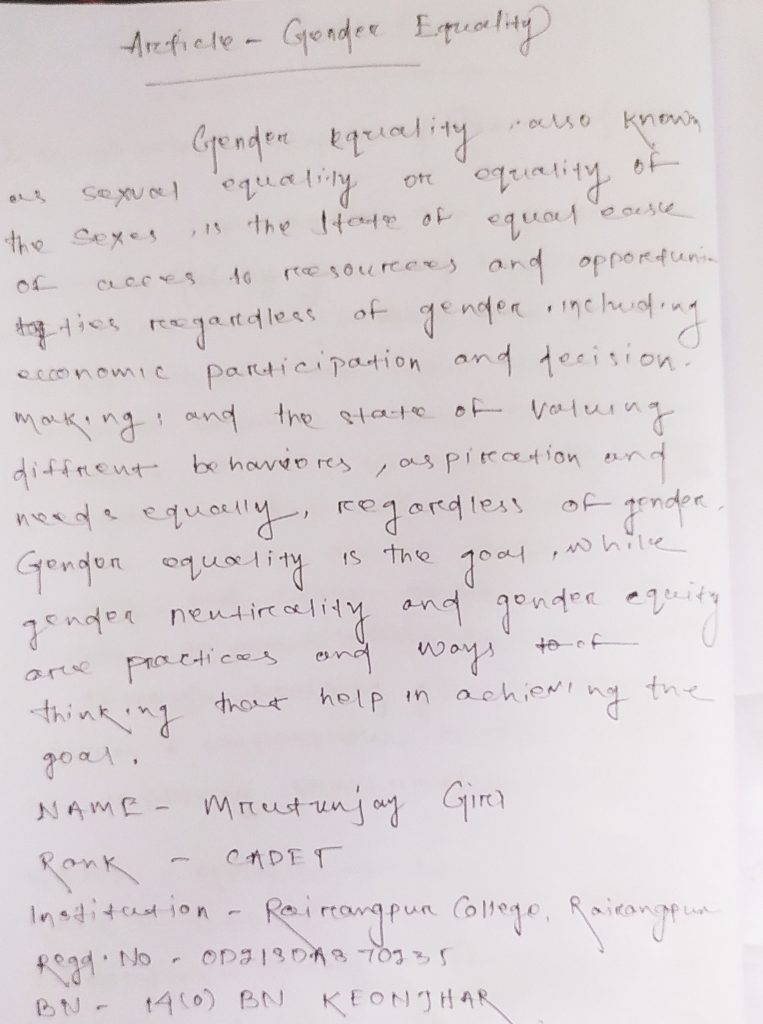 Article - Gender Equality
Gender equality, also known
as sexual equality or equality of
the sexes, is the state of equal ease
of acces to resources and opportuni-
ties regardless of gender, including
economic participation and decision-
making; and the state of valuing
diffrent behaviores, aspiration and
needs equally, regardless of gender.
Gender equality is the goal, while
gender neutirality and gender equity
are practices and ways of
thinking that help in achieving the
goal.
NAME - Mrutunjay Giri
Rank - CADET
Institution - Rairangpur College, Rairangpur
Regd. No -
BN - 14(O) BN KEONJHAR